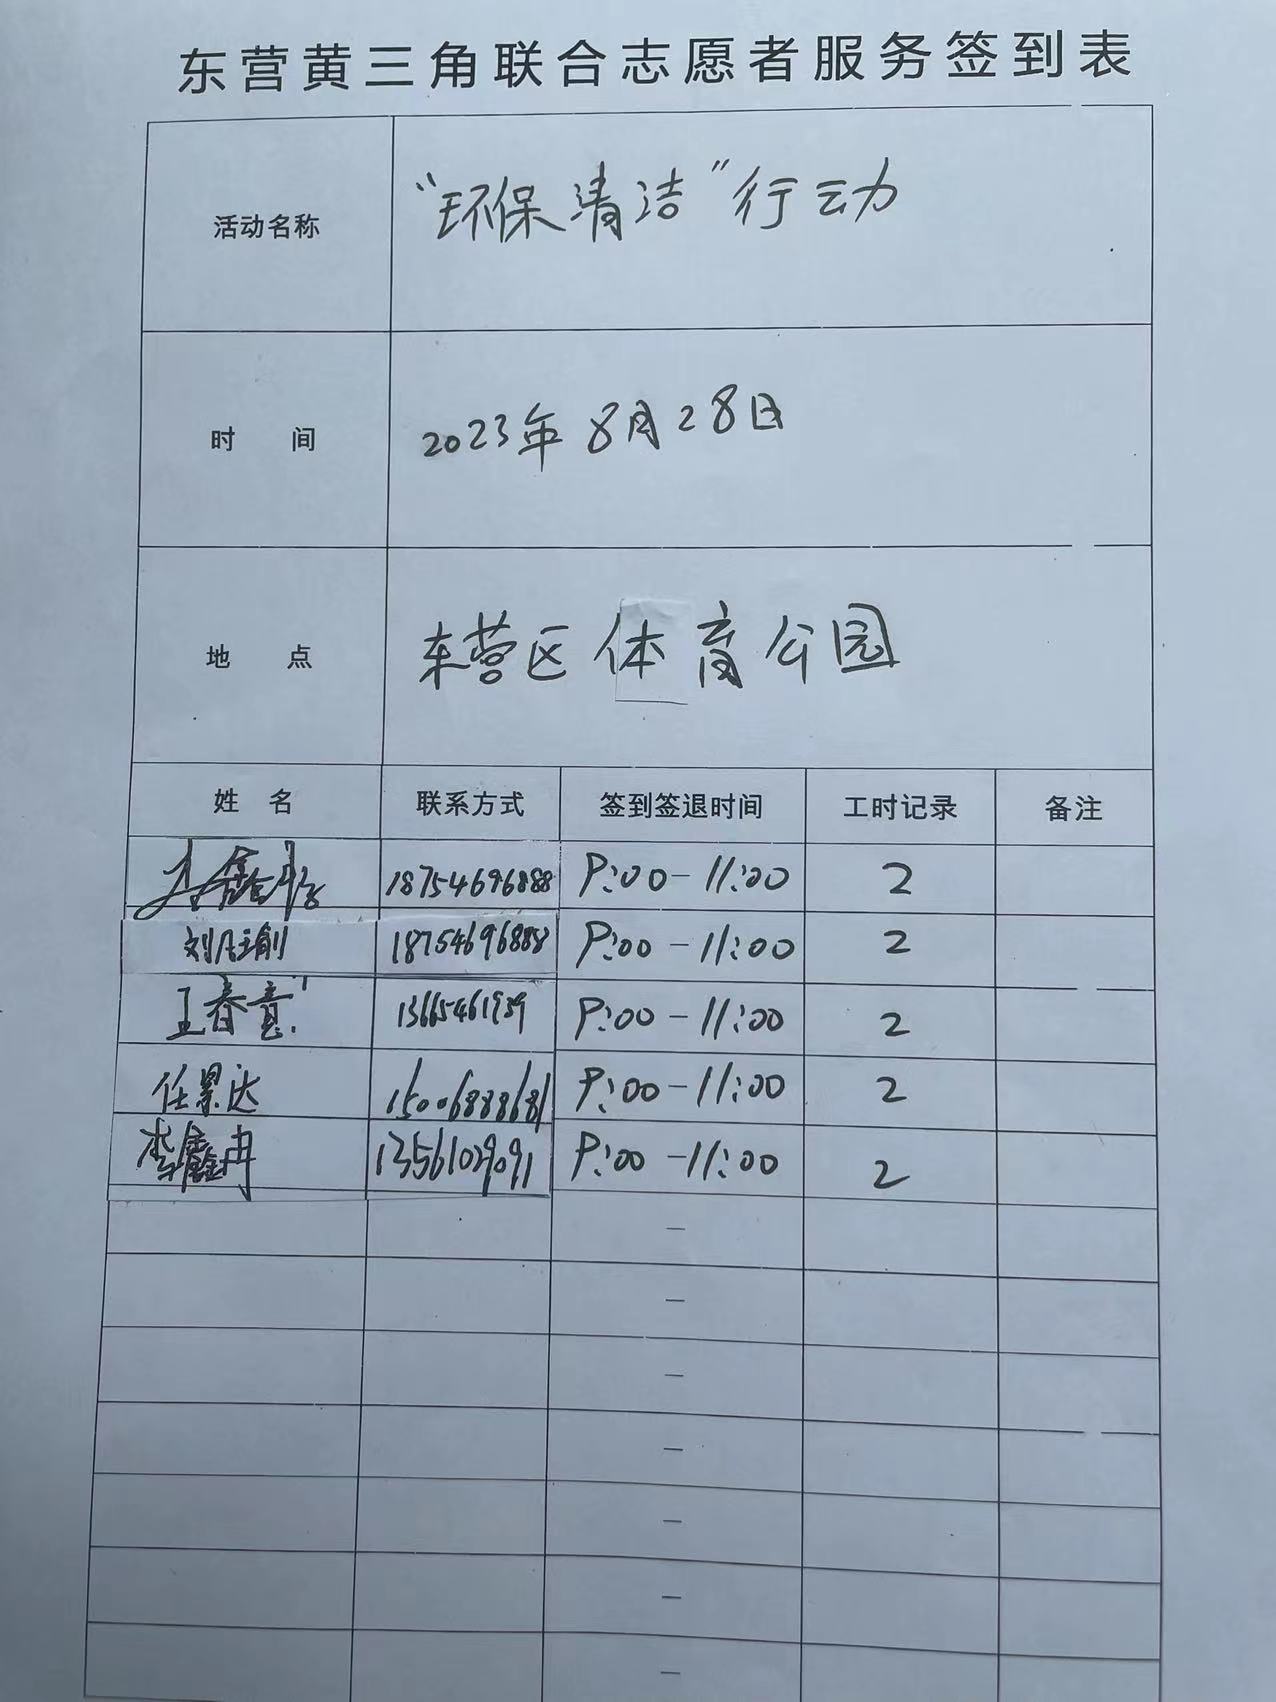 东营黄三角联合志愿者服务签到表
活动名称 “环保清洁”行动
时 间 2023年8月28日
地 点 东营区体育公园
姓 名 联系方式 签到签退时间 工时记录 备注
18754696888 9:00-11:00 2
18754696888 9:00-11:00 2
王春意 13665461939 9:00-11:00 2
任景达 15006888681 9:00-11:00 2
李鑫冉 13561029091 9:00-11:00 2
—
—
—
—
—
—
—